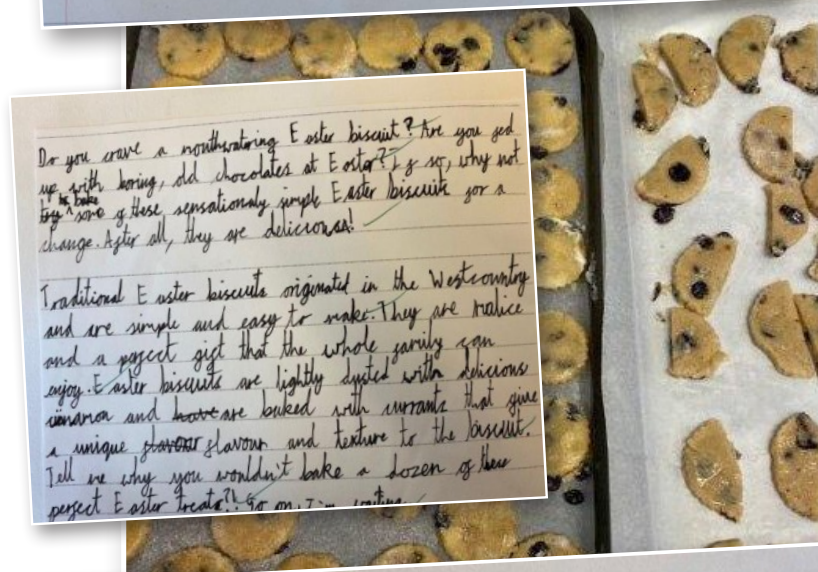 Do you crave a mouthwatering Easter biscuit? Are you fed
up with boring, old chocolates at Easter? If so, why not
try to bake some of these sensationaly simple Easter biscuits for a
change. After all, they are delicious!
Traditional Easter biscuits originated in the Westcountry
and are simple and easy to make. They are
and a perfect gift that the whole family can
enjoy. Easter biscuits are lightly dusted with delicious
cinnamon and are baked with currants that give
a unique flavour and texture to the biscuit.
Tell me why you wouldn't bake a dozen of these
perfect Easter treats?! Go on, I'm waiting